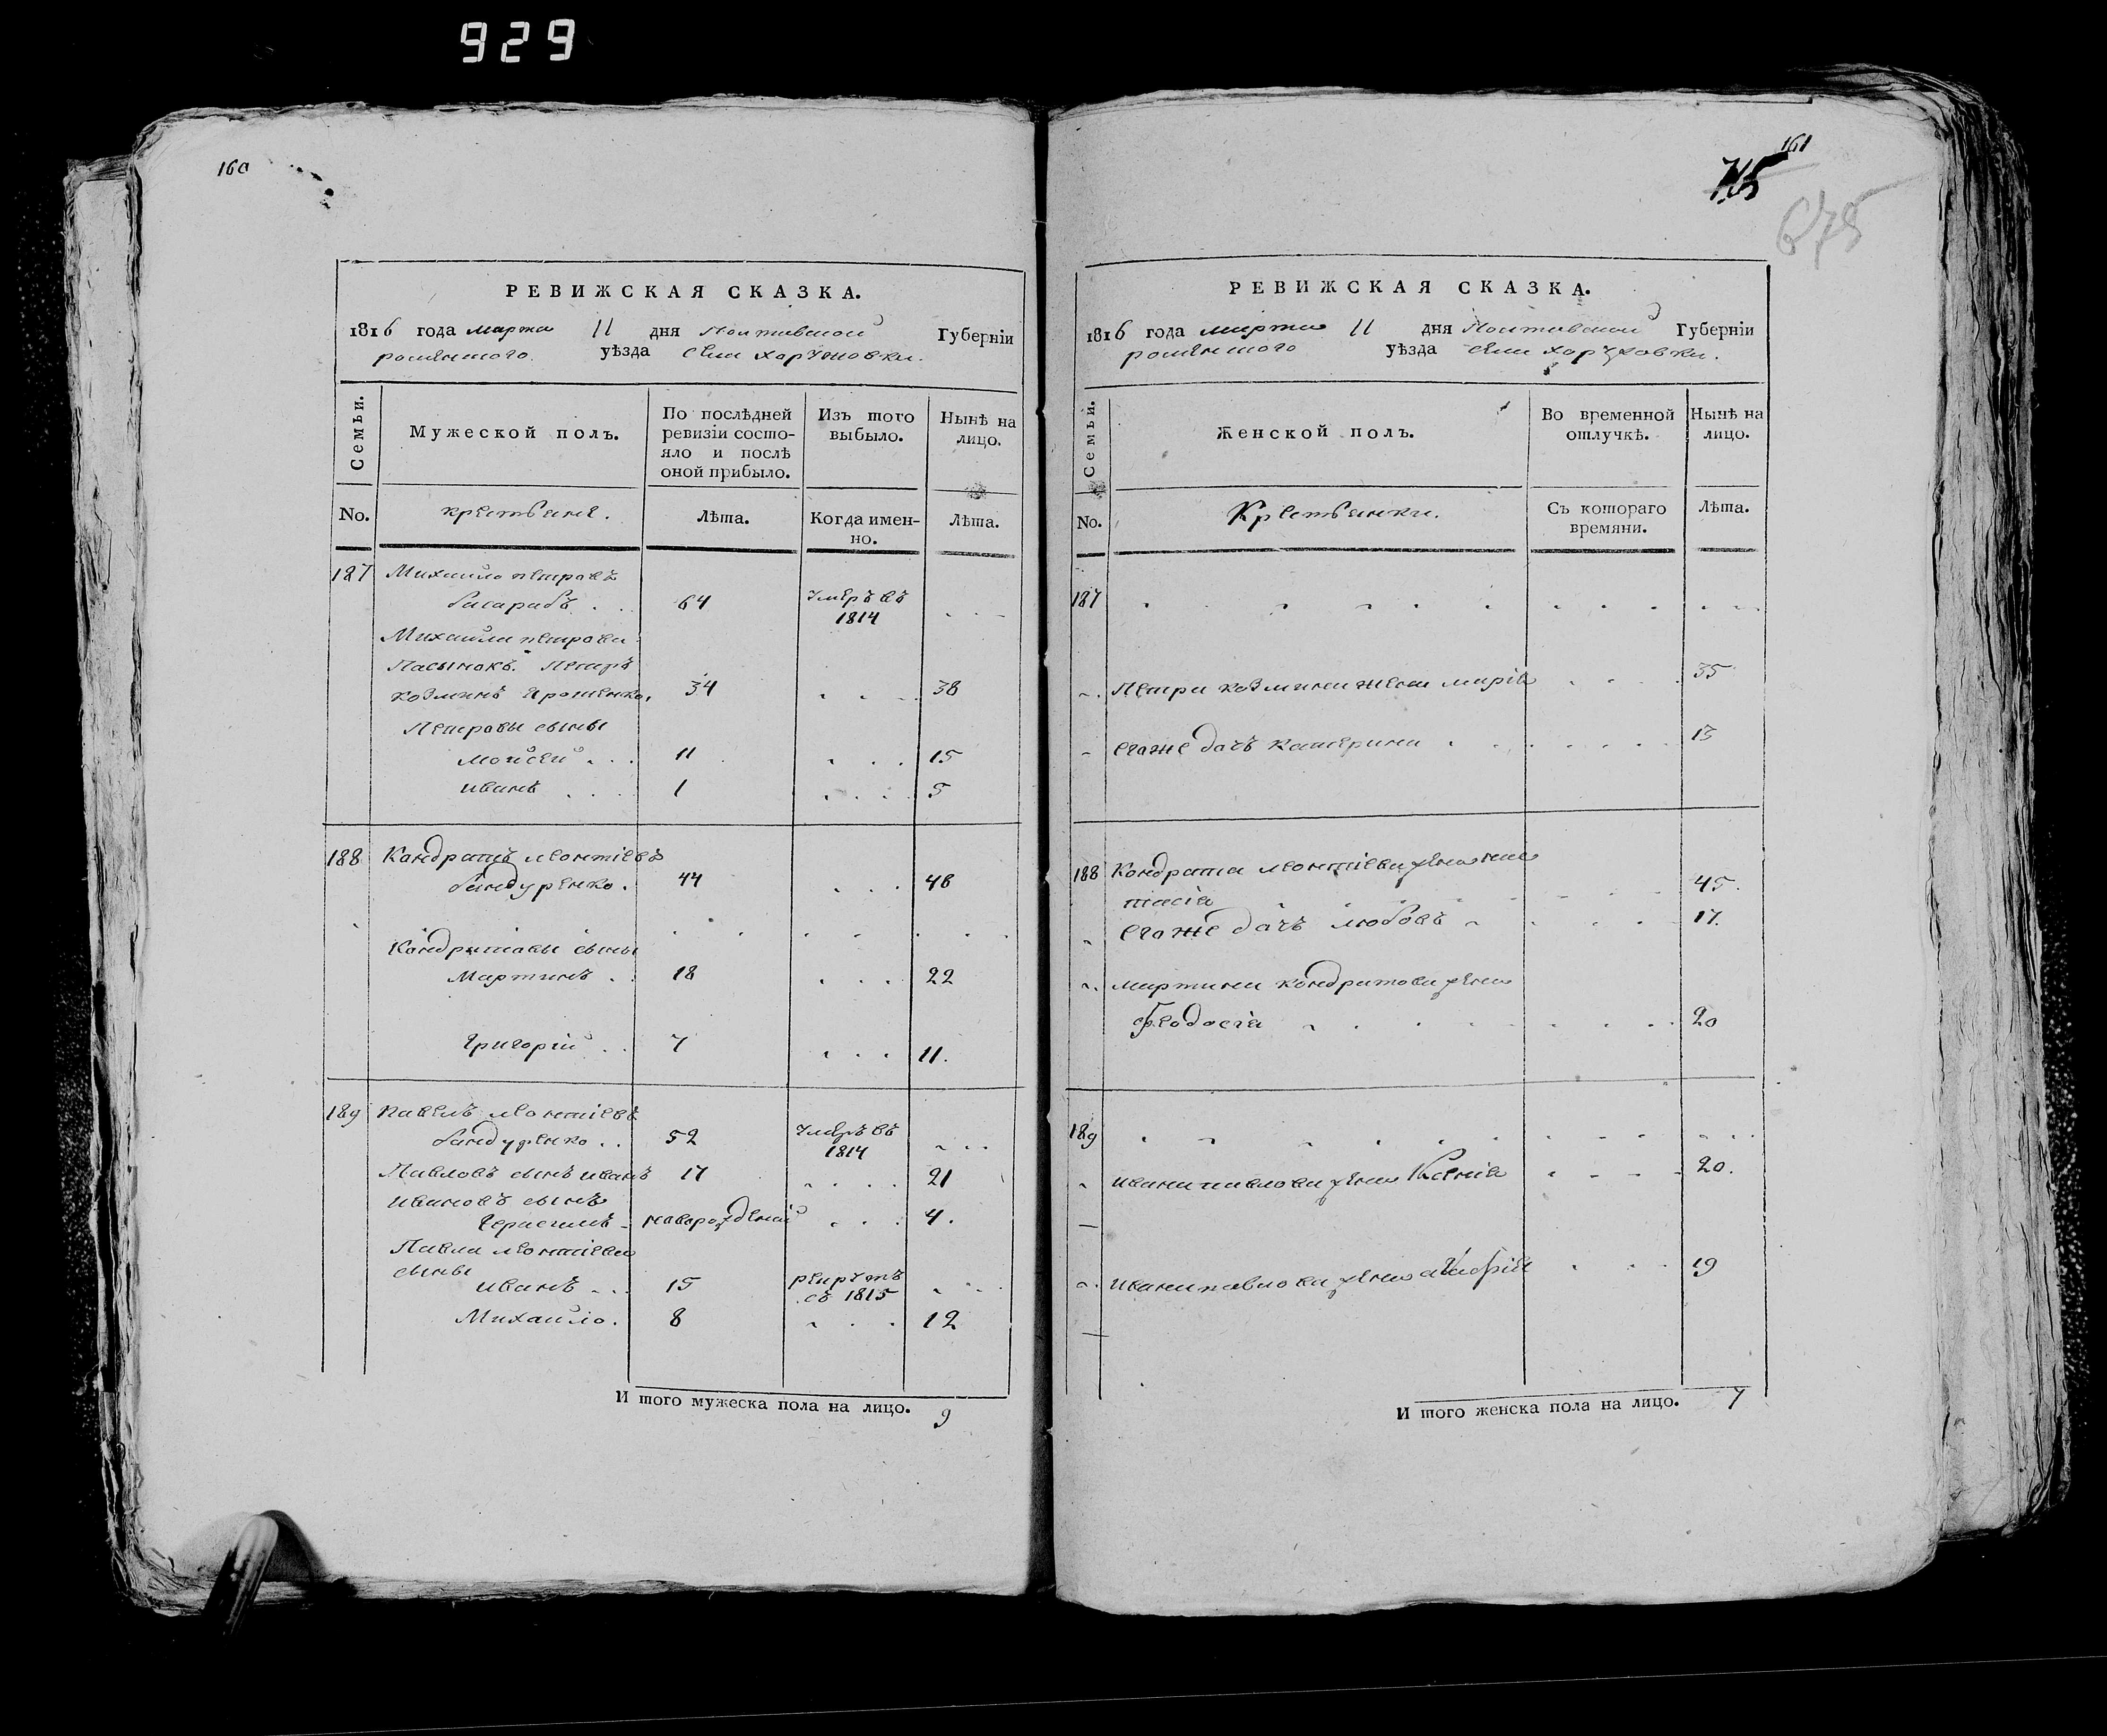 929
160
РЕВИЖСКАЯ СКАЗКА.
1816 года марта 11 дня Полтавской Губерніи
роменского уѣзда села
Семьи.
Мужеской полъ.
По послѣдней ревизіи состо-
яло и послѣ
оной прибыло.
Изъ того
выбыло.
Нынѣ на
лицо.
No.
крестьяне.
Лѣта.
Когда имен-
но.
Лѣта.
187 Михайло петровъ
басарабъ . . 64 умеръ въ 1814 . . .
Михайла петрова
Пасынокъ Петръ
козминъ ярошенко, 34 . . . 38
Петровы сыны
мойсей . . . 11 . . . 15
иванъ . . . 1 . . . 5
188 Кондратъ леонтіевъ
бандуренко . 44 . . . 48
Кондратовы сыны
Мартинъ . . 18 . . . 22
Григорій . . 7 . . . 11.
189 Павелъ леонтіевъ
бандуренко . . 52 умеръ въ 1814 . . .
Павловъ сынъ иванъ 17 . . . 21
ивановъ сынъ
новорожденій . . . 4.
Павла леонтіева
сыны
иванъ . . . 15 рекрутъ
съ 1815 . . .
Михайло . 8 . . . 12
И того мужеска пола на лицо. 9
161
675
РЕВИЖСКАЯ СКАЗКА.
1816 года марта 11 дня Полтавской Губерніи
роменского уѣзда села
Семьи.
Женской полъ.
Во временной
отлучкѣ.
Нынѣ на
лицо.
No.
Крестьянки.
Съ котораго
времяни.
Лѣта.
187 . . . . . . . .
Петра козмина жена марія . . . 35
егоже дочъ катерина . . . 13
188 Кондрата леонтіева жена нас
тасія . . . 45.
егоже дочъ любовъ . . . 17.
мартина кондратова жена
феодосія . . . 20
189 . . . . . . . .
ивана павлова жена Ксенія . . . 20.
ивана павлова жена . . . 19
И того женска пола на лицо. 7